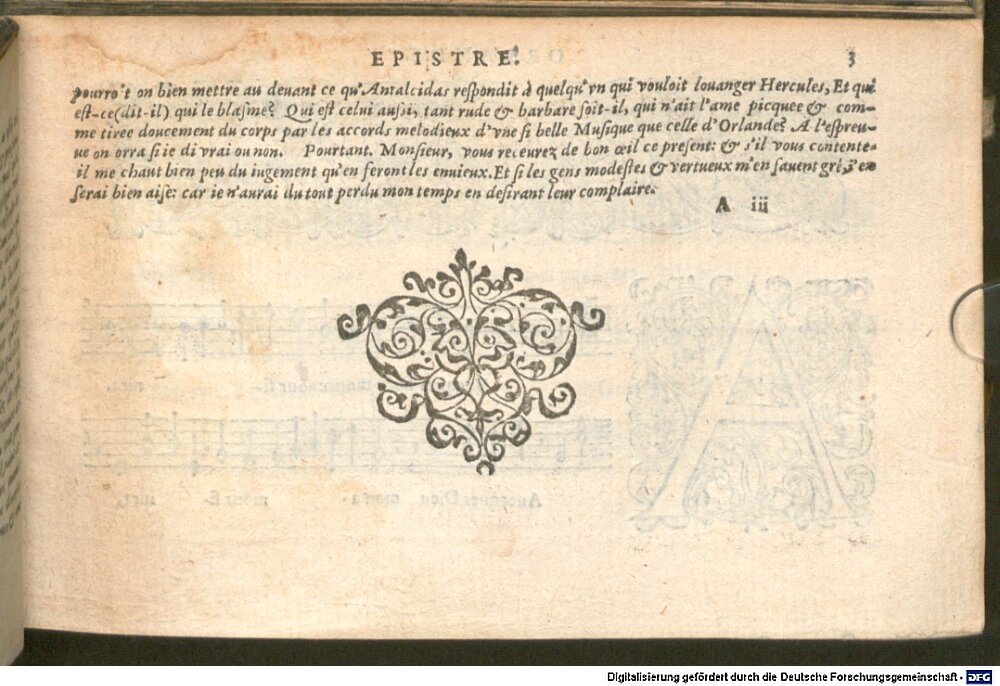 EPISTRE. 3
pourroit on bien mettre au deuant ce qu'Antalcidas respondit à quelqu'vn qui vouloit louanger Hercules, Et qui
est-ce (dit-il) qui le blasme? Qui est celui aussi, tant rude & barbare soit-il, qui n'ait l'ame picquee & com-
me tiree doucement du corps par les accords melodieux d'vne si belle Musique que celle d'Orlande? A l'espreu-
ue on orra si ie di vrai ou non. Pourtant, Monsieur, vous receurez de bon œil ce present: & s'il vous contente-
il me chaut bien peu du iugement qu'en feront les enuieux. Et si les gens modestes & vertueux m'en sauent gré, j'en
serai bien aise: car ie n'aurai du tout perdu mon temps en desirant leur complaire.
A iii
Digitalisierung gefördert durch die Deutsche Forschungsgemeinschaft - DFG